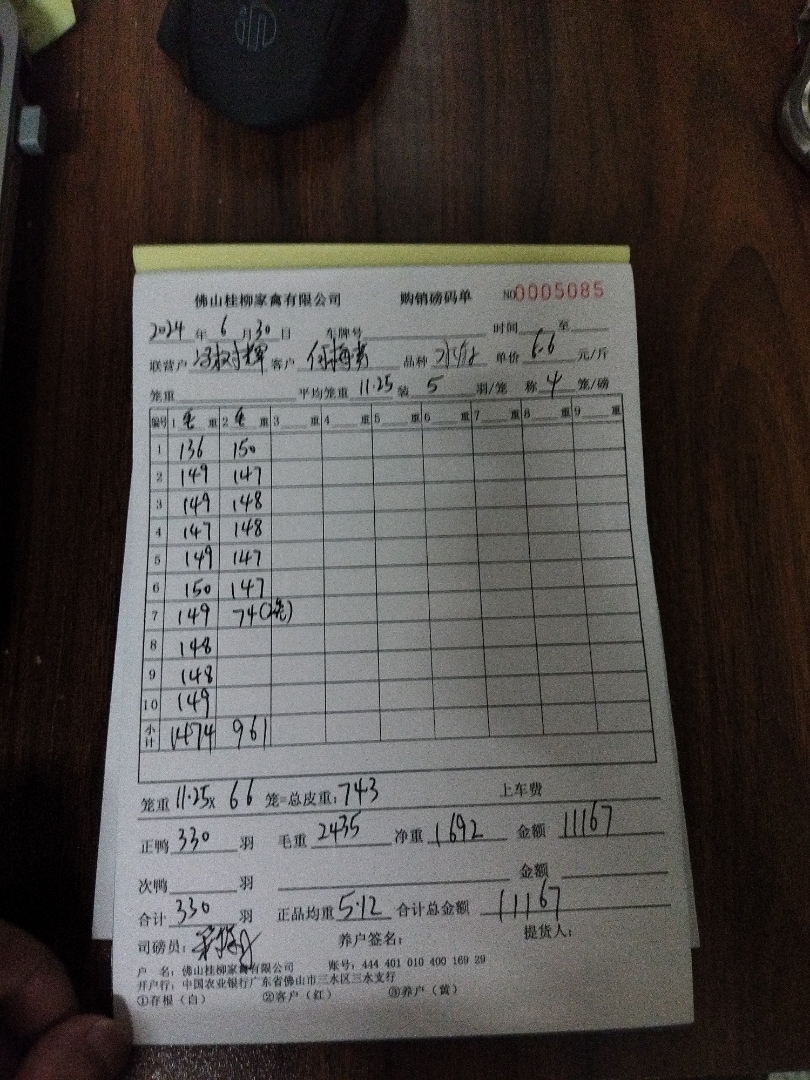 佛山桂柳家禽有限公司 购销磅码单 NO 0005085
2024 年 6 月 30 日 车牌号 时间 至
联营户 客户 品种 单价 6.6 元/斤
笼重 平均笼重 11.25 装 5 羽/笼 称 4 笼/磅
编号 1 毛 重 2 毛 重 3 重 4 重 5 重 6 重 7 重 8 重 9 重
1 136 150
2 149 147
3 149 148
4 147 148
5 149 147
6 150 147
7 149 74(2笼)
8 148
9 148
10 149
小计 1474 961
笼重 11.25 x 66 笼=总皮重: 743 上车费
正鸭 330 羽 毛重 2435 净重 1692 金额 11167
次鸭 羽 金额
合计 330 羽 正品均重 5.12 合计总金额 11167
司磅员: 养户签名: 提货人:
户 名: 佛山桂柳家禽有限公司 账号: 444 401 010 400 169 29
开户行: 中国农业银行广东省佛山市三水区三水支行
①存根（白） ②客户（红） ③养户（黄）